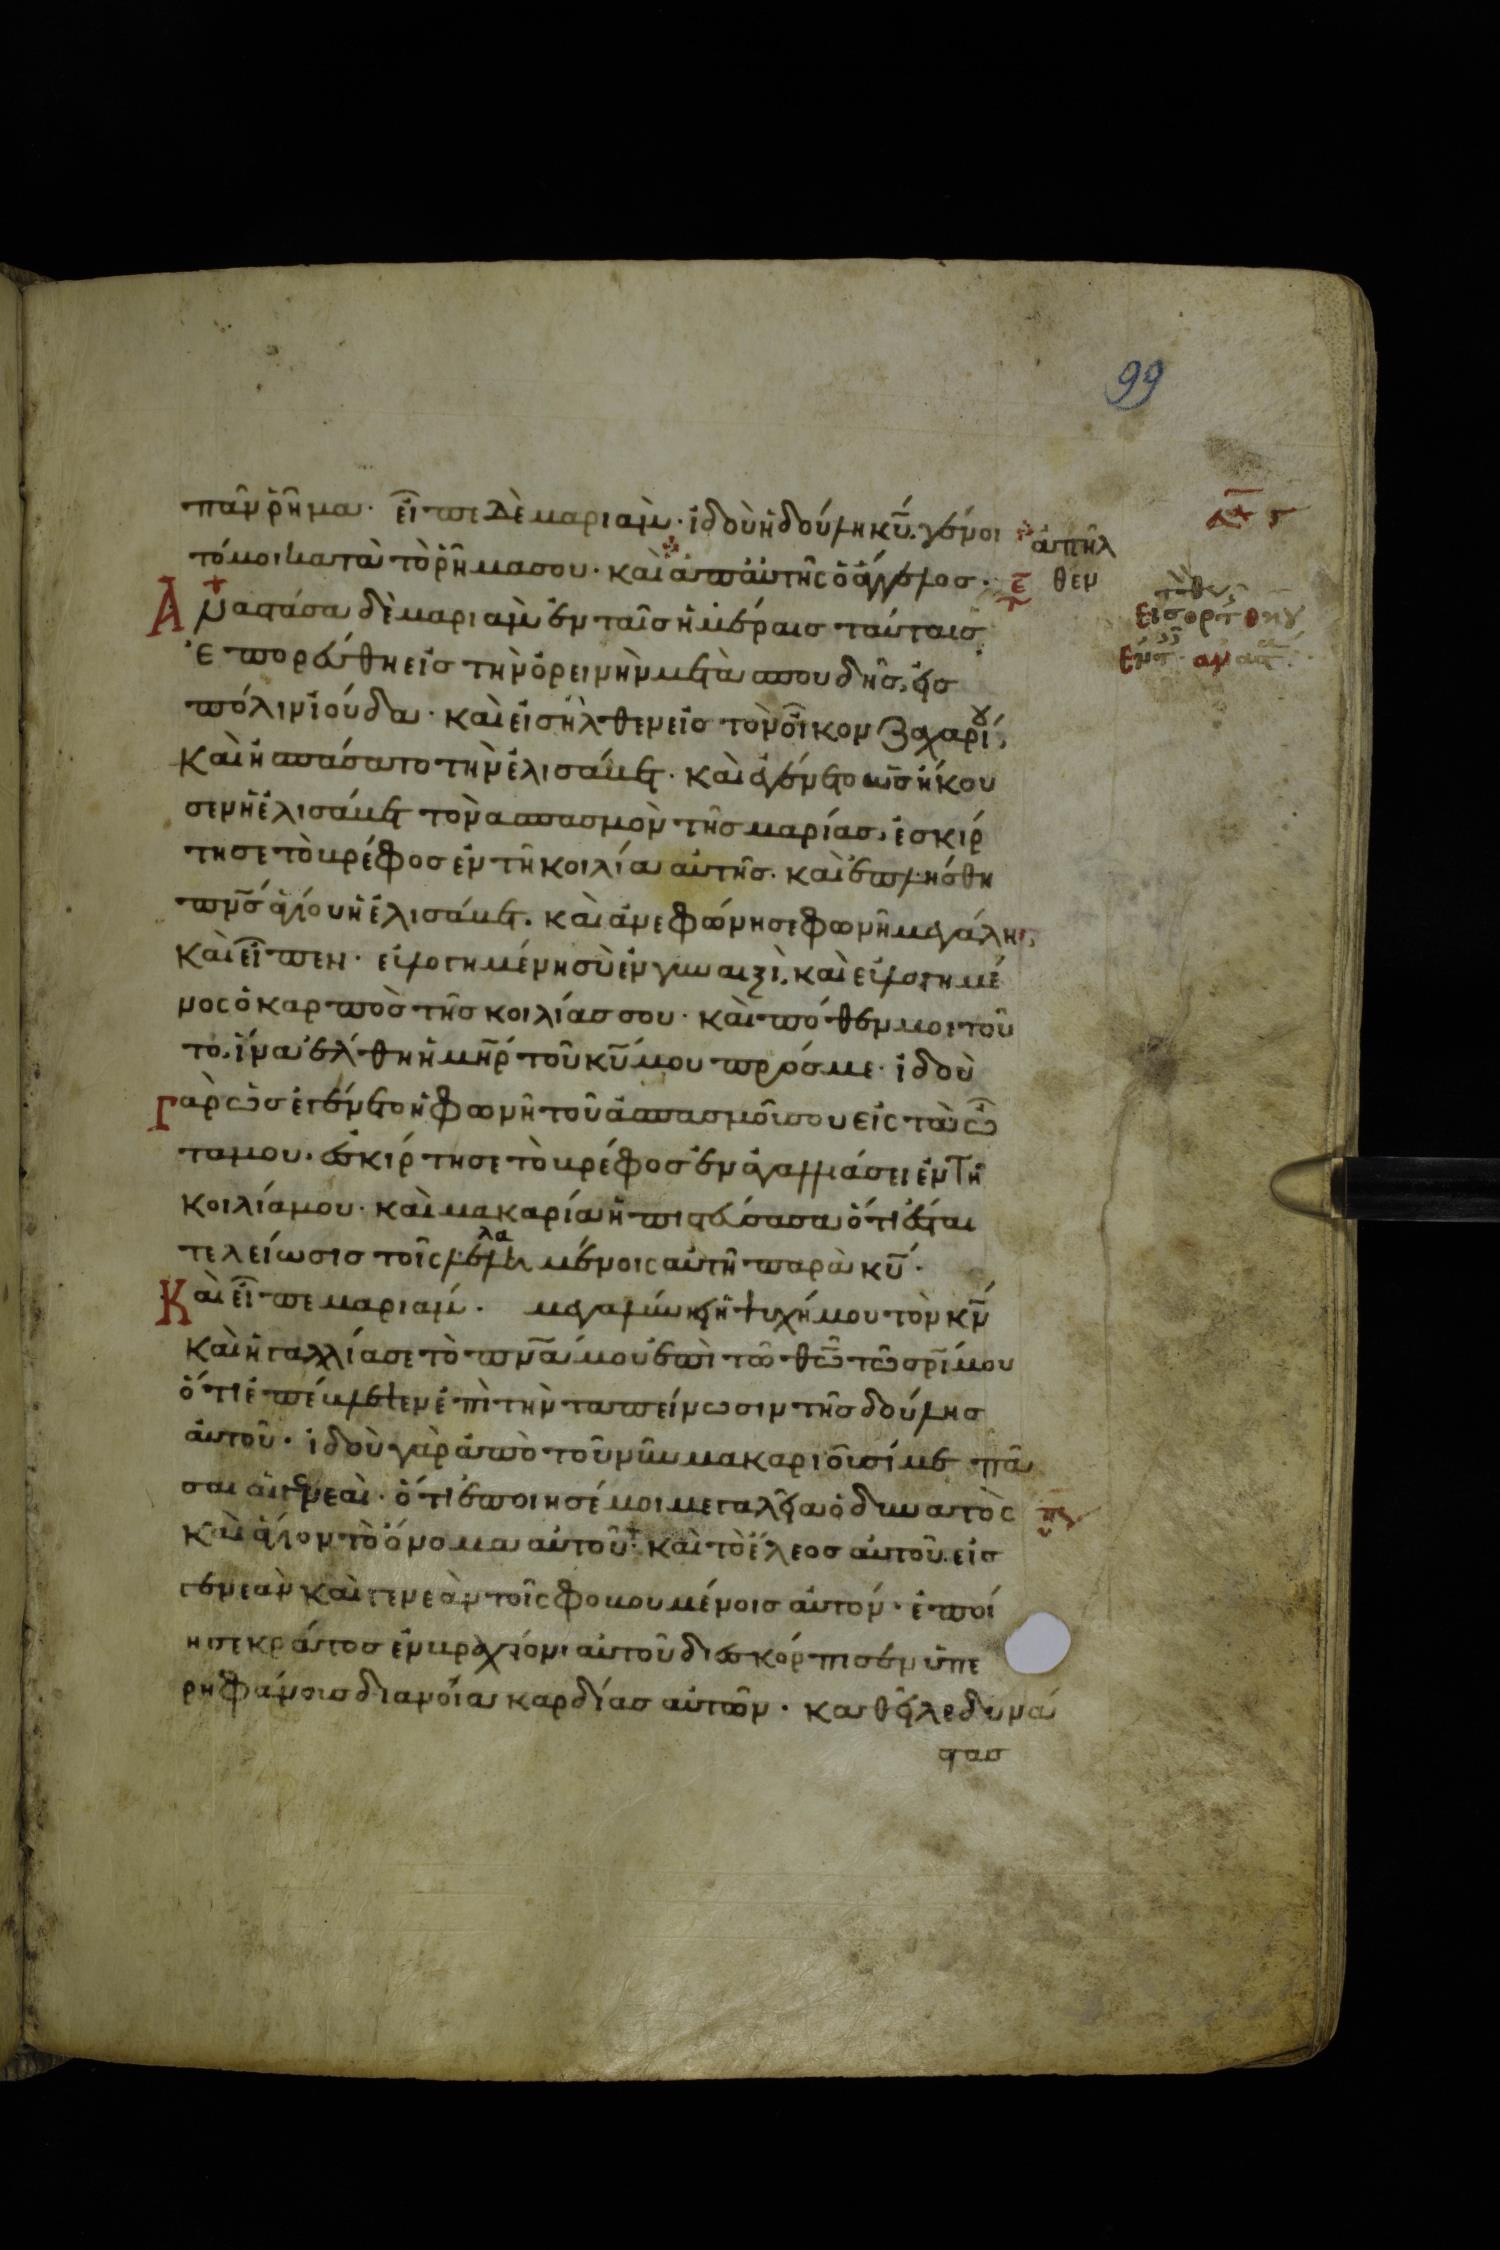 99
πᾶν ῥῆμα· εἶπε δὲ μαριάμ· ἰδοὺ ἡ δούλη κ̅υ̅. γένοι
τό μοι κατὰ τὸ ῥῆμα σου· καὶ ἀπ αὐτῆς ὁ ἄγγελος·
ἀπῆλ
θεν
Ἀναστᾶσα δὲ μαριὰμ ἐν ταῖς ἡμέραις ταύταις
ἐπορεύθη εἰς τὴν ὀρεινὴν μετὰ σπουδῆς, εἰς
πόλιν ἰούδα· καὶ εἰσῆλθεν εἰς τὸν οἶκον ζαχαρίου
καὶ ἠσπάσατο τὴν ἐλισάβετ· καὶ ἐγένετο ὡς ἤκου
σεν ἡ ἐλισάβετ τὸν ἀσπασμὸν τῆς μαρίας, ἐσκίρ
τησε τὸ βρέφος ἐν τῇ κοιλία αὐτῆς. καὶ ἐπλήσθη
π̅ν̅ς̅ ἁγίου ἡ ἐλισάβετ. καὶ ἀνεφώνησε φωνῇ μεγάλη,
καὶ εἶπεν· εὐλογημένη σὺ ἐν γυναιξὶ, καὶ εὐλογημέ
νος ὁ καρπὸς τῆς κοιλίας σου· καὶ πόθεν μοι τοῦ
το, ἵνα ἔλθη ἡ μ̅η̅ρ̅ τοῦ κ̅υ̅ μου πρός με· ἰδοὺ
γὰρ ὡς ἐγένετο ἡ φωνὴ τοῦ ἀσπασμοῦ σου εἰς τὰ ὦ
τα μου. ἐσκίρτησε τὸ βρέφος ἐν ἀγαλλιάσει ἐν τῆ
κοιλία μου· καὶ μακαρία ἡ πιστεύσασα ὅτι ἔσται
τελείωσις τοῖς λελαλημένοις αὐτῆ παρὰ κ̅υ̅·
Καὶ εἶπε μαριάμ· μεγαλύνει ἡ ψυχή μου τὸν κ̅ν̅
καὶ ἠγαλλίασε τὸ π̅ν̅α̅ μου ἐπὶ τῶ θ̅ω̅ τῶ σ̅ρ̅ι̅ μου
ὅτι ἐπέβλεψεν ἐπὶ τὴν ταπείνωσιν τῆς δούλης
αὐτοῦ· ἰδοὺ γὰρ ἀπὸ τοῦ νῦν μακαριοῦσί με πᾶ
σαι αἱ γενεαί· ὅτι ἐποίησέ μοι μεγαλεῖα ὁ δυνατὸς
καὶ ἅγιον τὸ ὄνομα αὐτοῦ· καὶ τὸ ἔλεος αὐτοῦ. εἰς
γενεὰν καὶ γενεὰν τοῖς φοβουμένοις αὐτόν· ἐποί
ησε κράτος ἐν βραχίονι αὐτοῦ διεσκόρπισεν ὑπε
ρηφάνους διανοία καρδίας αὐτῶν· καθεῖλε δυνά
στας